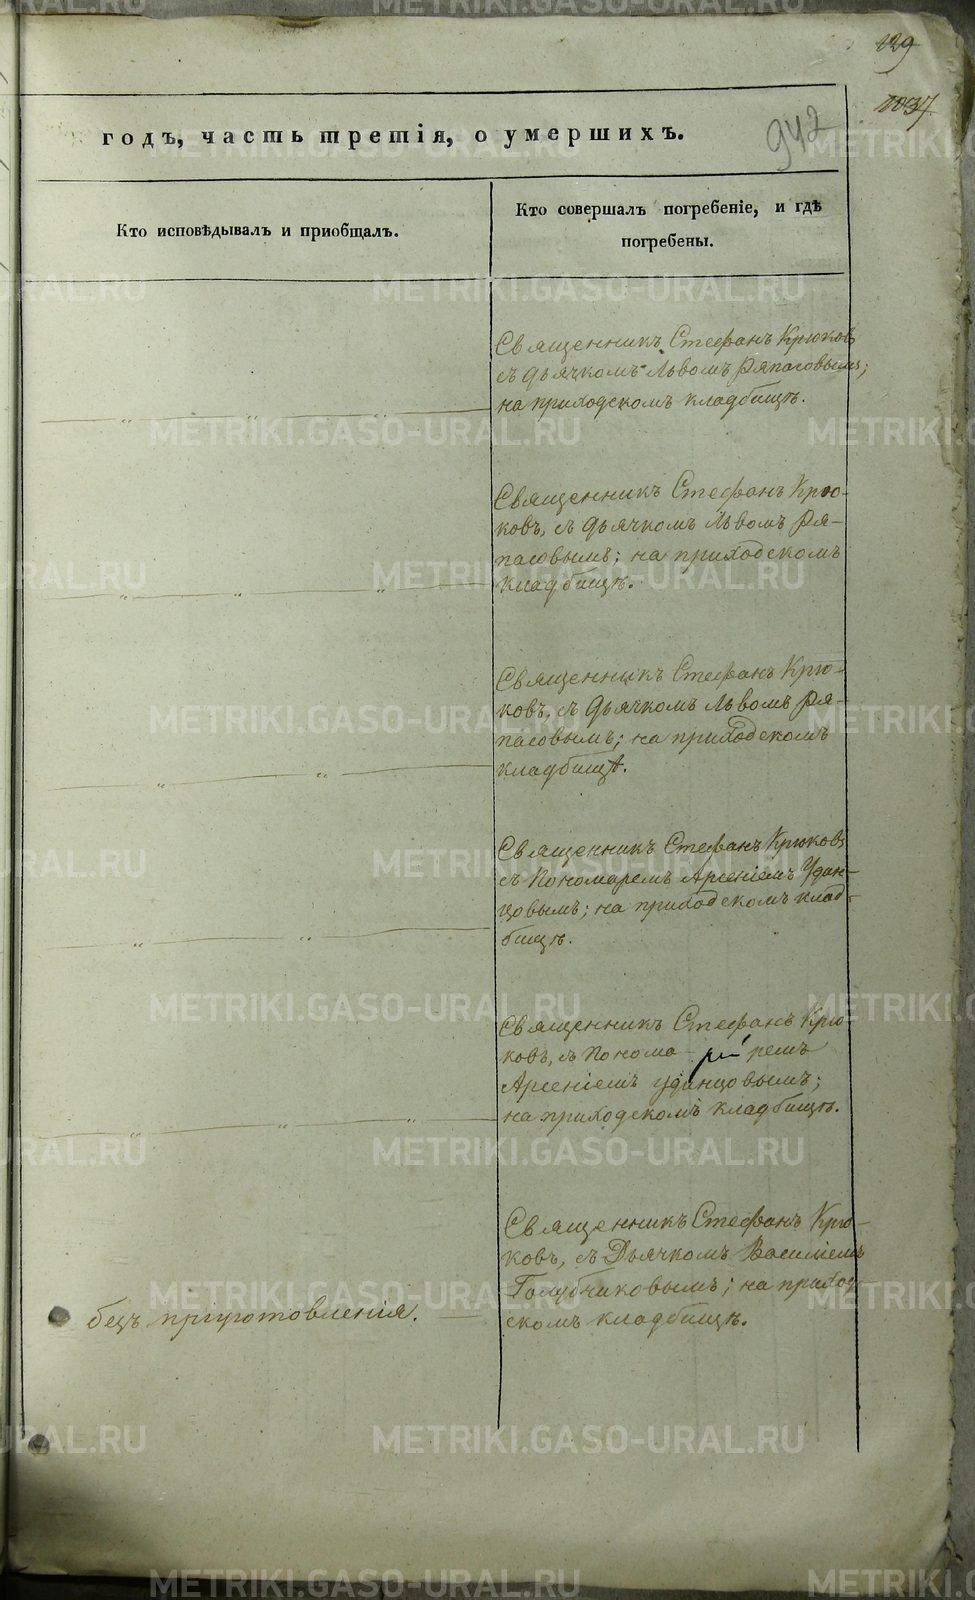 129
1037
942
годъ, часть третія, о умершихъ.
Кто исповѣдывалъ и приобщалъ.
Кто совершалъ погребеніе, и гдѣ
погребены.
Священникъ Стефанъ Крюковъ
съ дьячкомъ Львомъ Ряпасовымъ;
на приходскомъ кладбищѣ.
Священникъ Стефанъ Крю-
ковъ, съ дьячкомъ Львомъ Ря-
пасовымъ; на приходскомъ
кладбищѣ.
Священникъ Стефанъ Крю-
ковъ, съ дьячкомъ Львомъ Ря-
пасовымъ; на приходскомъ
кладбищѣ.
Священникъ Стефанъ Крюковъ
съ Пономаремъ Арсеніемъ Удин-
цовымъ; на приходскомъ клад-
бищѣ.
Священникъ Стефанъ Крю-
ковъ, съ Понома- ремъ
Арсеніемъ Удинцовымъ;
на приходскомъ кладбищѣ.
Священникъ Стефанъ Крю-
ковъ, съ Дьячкомъ Василіемъ
Голубчиковымъ; на приход-
скомъ кладбищѣ.
безъ приуготовленія.
METRIKI.GASO-URAL.RU